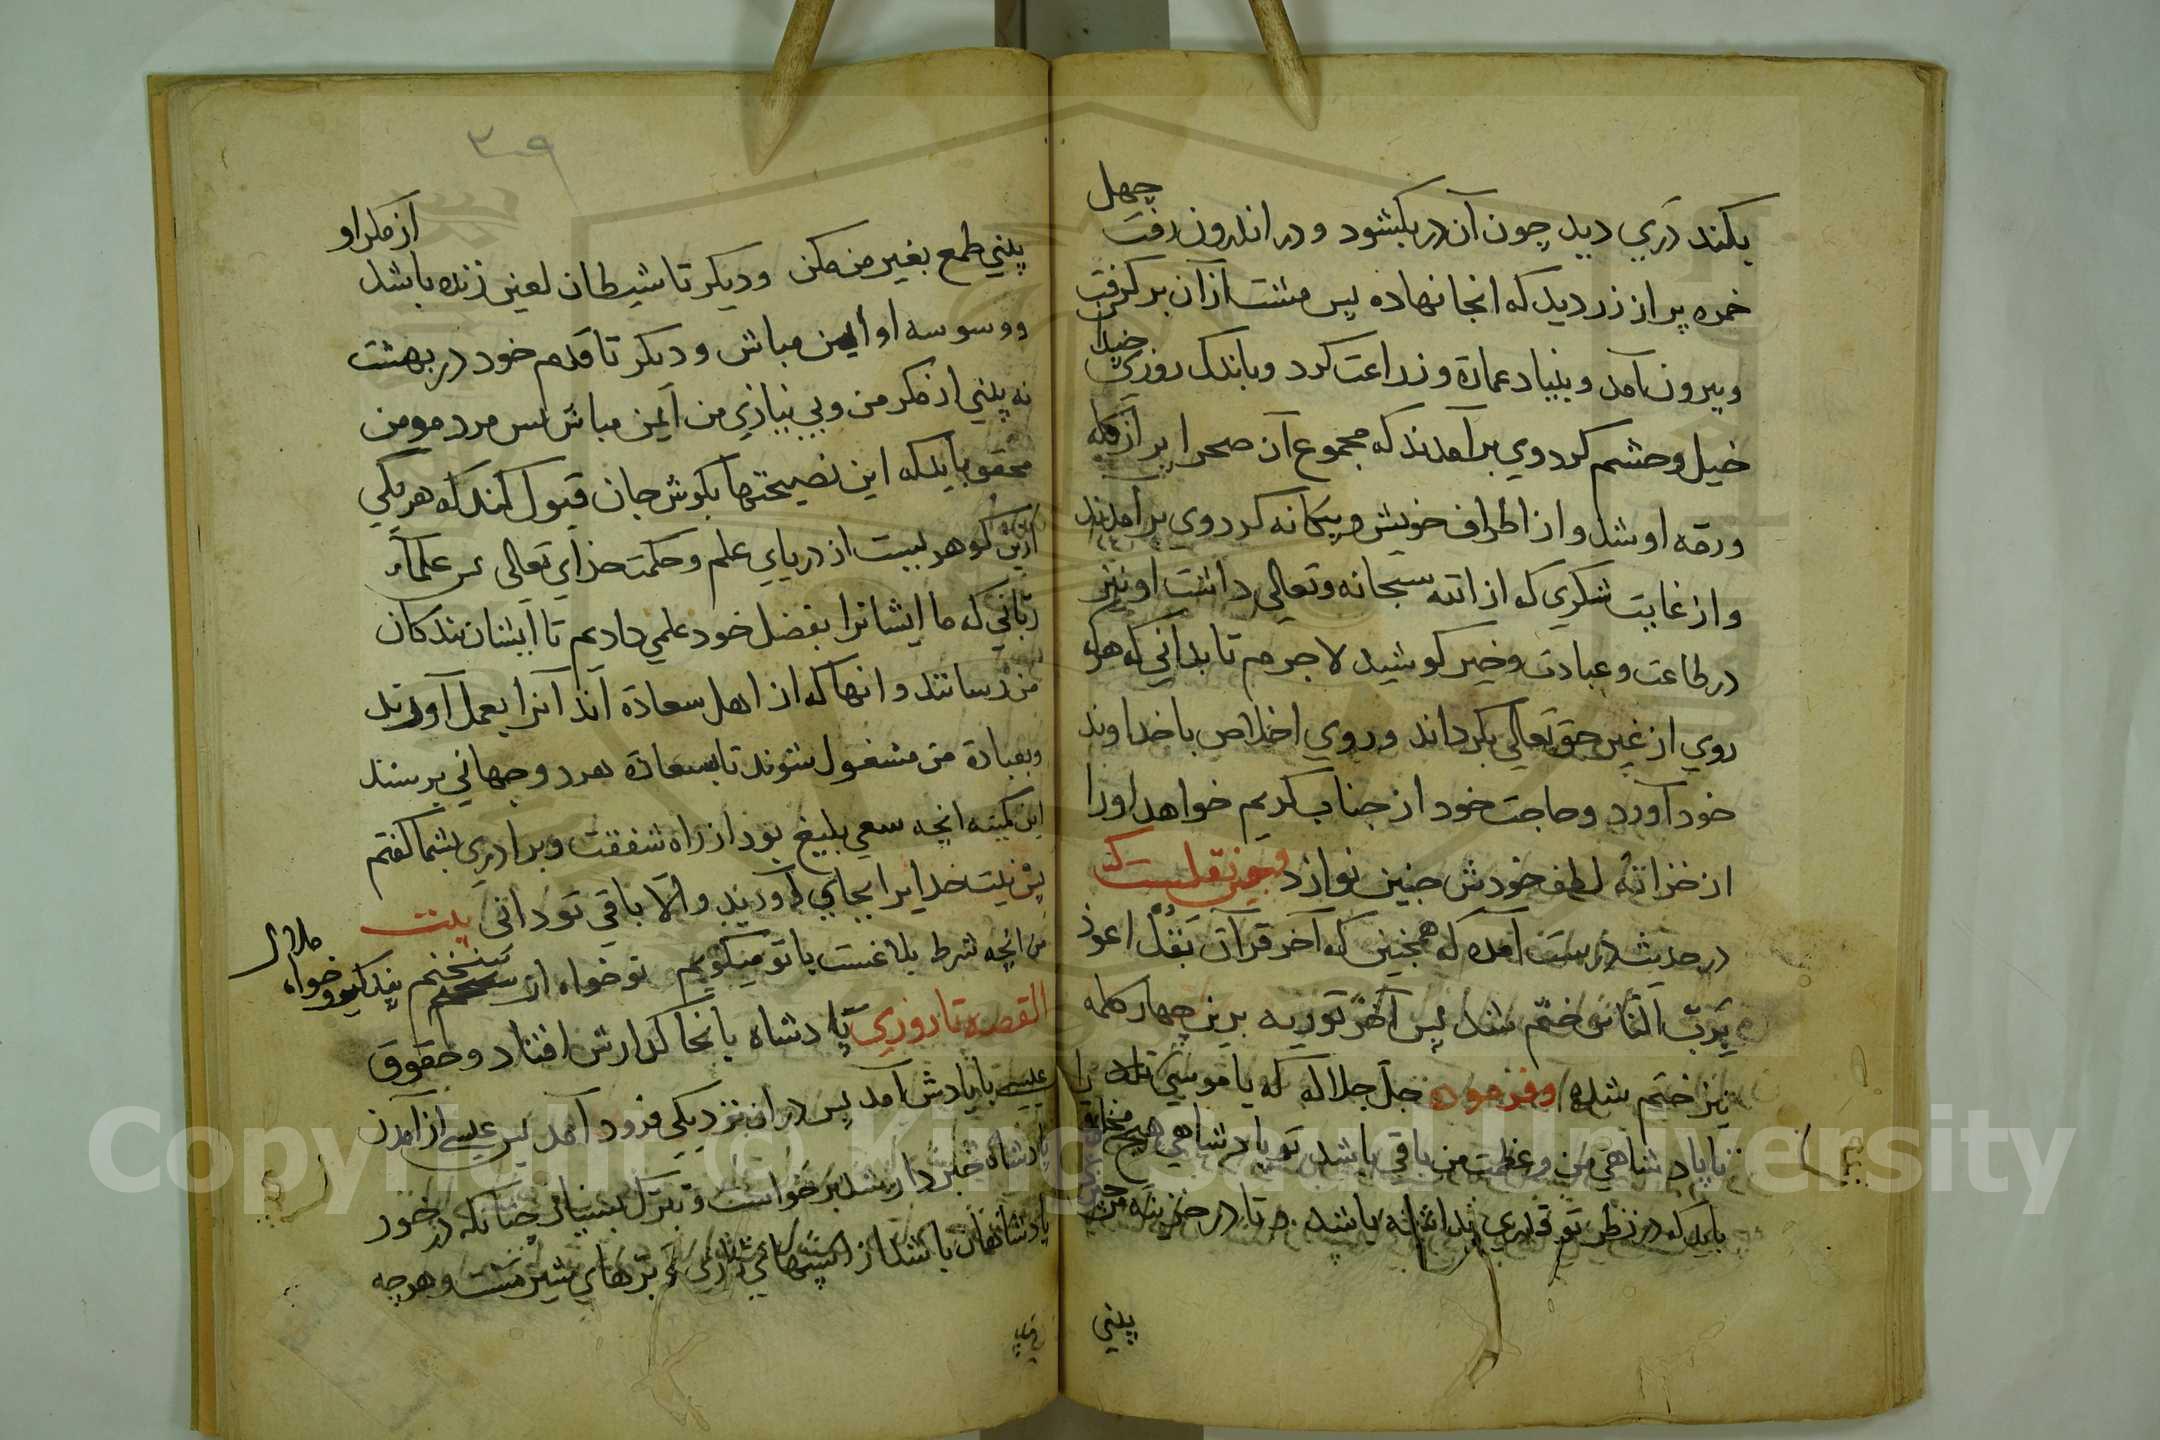 بكند دري ديد چون آن در بكشود و در اندرون رفت چهل
خمره پر از زر ديد كه انجا نهاده پس مشت از آن بر كرفت
و بيرون آمد و بنياد عمارة و زراعت كرد و باندك روزي خيل
خيل و حشم كرد وي بر آمدند كه مجموع آن صحرا پر از كله
و رمه او شد و از اطراف خويش و بيكانه كرد وي بر آمدند
و از غايت شكري كه از الله سبحانه وتعالي داشت او نيز
در طاعت و عبادت و خير كوشيد لا جرم تا بداني كه هر كه
روي از غير حق تعالي بكرداند و روي اخلاص با خداوند
خود آورد و حاجت خود از جناب كريم خواهد او را
از خزانه لطف خودش چنين نوازد و چنين نقلست كه
در حديث درست آمده كه همچنين كه آخر قرآن بقل اعوذ
برب الناس ختم شد پس آخر تورية برين چهار كلمه
نيز ختم شده و فرموده جل جلاله كه يا موسي تا
تا پادشاهي من و عظمت من باقي باشد تو پادشاهي هيچ مخلوق
بايد كه در نظر تو قدري نداشته باشد و تا در خزينه من
پيني
٣٠٩
پيني طمع بغير من مكن و ديكر تا شيطان لعين زنده باشد از مكر او
و وسوسه او ايمن مباش و ديكر تا قدم خود در بهشت
نه پيني از مكر من و بي نيازي من ايمن مباش پس مرد مومن
محقق بايد كه اين نصيحتها بكوش جان قبول كند كه هر يكي
ازين كوهريست از درياي علم و حكمت خداي تعالي علماء
رباني كه ما ايشانرا بفضل خود علمي داديم تا ايشان بندكان
من رسانند و انها كه از اهل سعادة اند آنرا بعمل آورند
و بعبادة من مشغول شوند تا بسعادة هر دو جهاني برسند
اين كمينه انچه سعي بليغ بود از راه شفقت و برادري بشما كفتم
خدايرا بجاي آوريد و الا باقي تو داني بيت
من انچه شرط بلاغست با تو ميكويم تو خواه از سخنم پند كير و خواه ملال
القصه تا روزي پادشاه بانجا كذارش افتاد و حقوق
عيسي با يادش آمد پس دران نزديكي فرود آمد پس عيسي از آمدن
پادشاه خبر دار شد بر خواست و نزل بسيار چنانكه در خور
پادشاهان باشد از اسپهاي تازي و بزهاي شير مست و هر چه